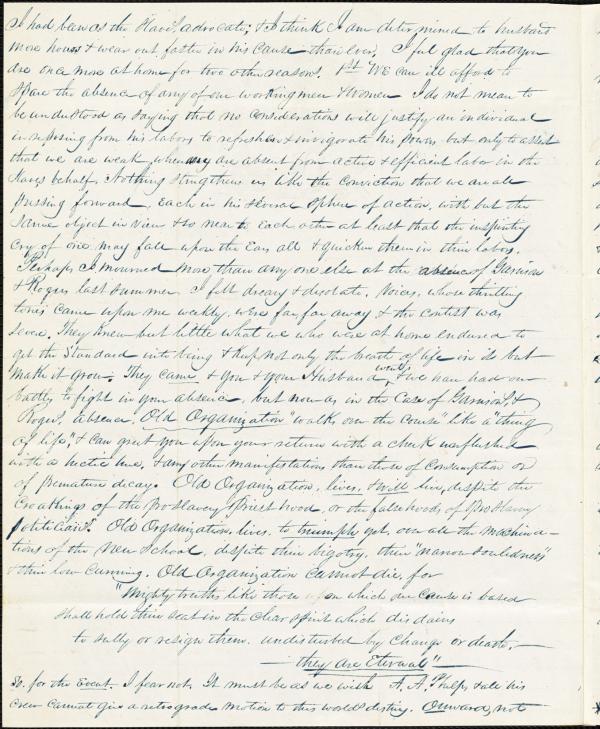 I had been as the Slave's advocate; & I think I am determined to husband
more hours & wear out faster in his cause than ever. I feel glad that you
are once more at home for two other reasons. 1st We can ill afford to
spare the absence of any of our workingmen & women I do not mean to
be understood as saying that no considerations will justify an individual
in reposing from his labors to refreshen & invigorate his powers but only to assert
that we are weak, when any are absent from active & efficient labor in the
Slaves behalf. Nothing strengthens us like the conviction that we are all
pressing forward, each in his several sphere of action, with but the
same object in view & so near to each other at least that the inspiriting
cry of one may fall upon the Ear all & quicken them in their labors.
Perhaps I mourned more than any one else at the absence of Garrison
& Rogers last summer. I felt dreary & desolate. Voices, whose thrilling
tones came upon me weekly, were far far away & the contest was
severe. They knew but little what we who were at home endured to
get the Standard into being & keep not only the breath of life in it but
make it grow. They came, & you & your Husband went, & we have had our
battles to fight in your absence, but now as in the Case of Garrison's &
Rogers' absence, "Old Organization" "walks over the course" like a "thing
of life," & can greet you upon your return with a cheek unflushed
with a hectic hue, & any other manifestations than those of Consumption or
of premature decay. Old Organization, lives, & will live, despite the
Croakings of the pro Slavery Priesthood, or the falsehoods of Pro Slavery
politicians. Old Organization, lives, to triumph yet, over all the machina-
tions of the New School, despite their bigotry, their "narrow souledness"
& their low Cunning. Old Organization cannot die, for
"Mighty truths like those upon which our Cause is based
shall hold their seat in the Clear Spirit which disdains
to sully or resign them. undisturbed by Change or death.—
—they are Eternal"—
So. for the Event. I fear not. It must be as we wish A. A. Phelps & all his
crew cannot give a retrograde motion to this world's destiny. Onward, not